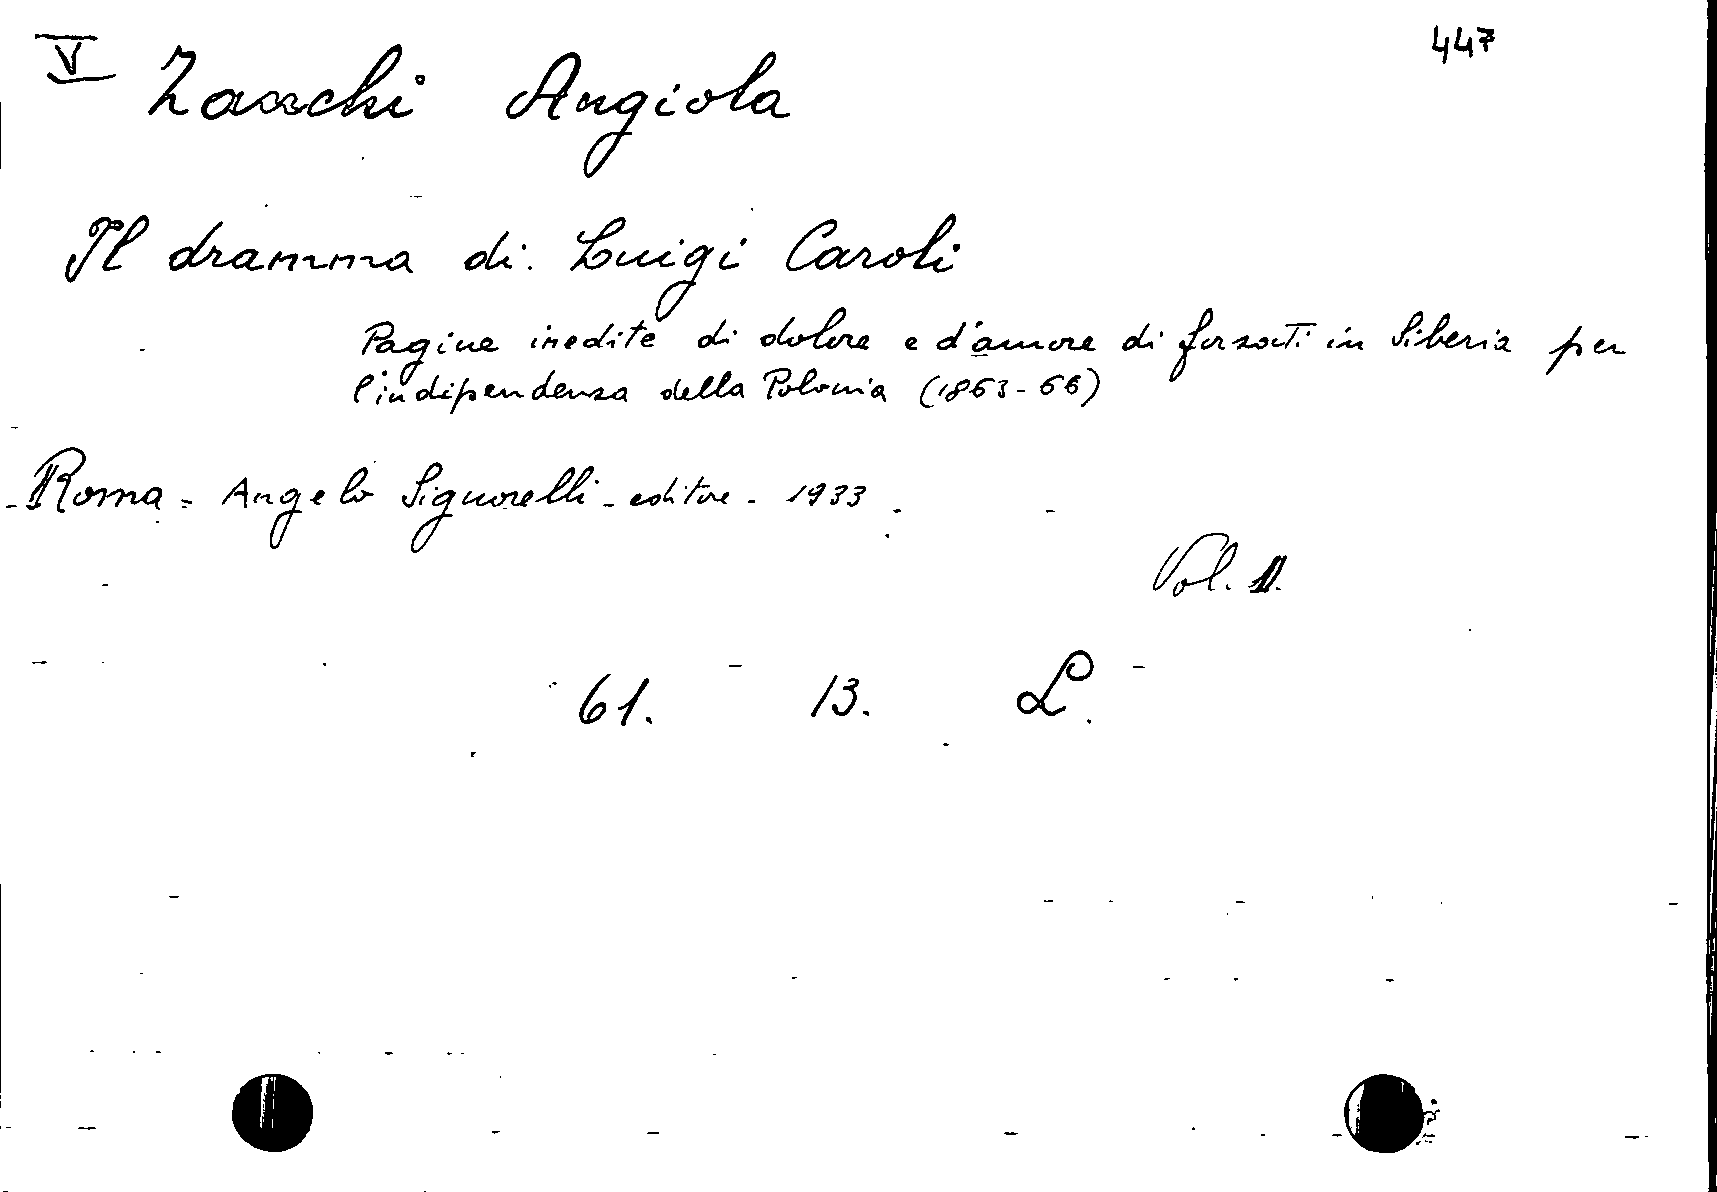 V 447
Zanchi Angiola
Il dramma di Luigi Caroli
Pagine inedite di dolore e d'amore di forzati in Siberia per
l'indipendenza della Polonia (1863-66)
Roma - Angelo Signorelli - editore - 1933.
Vol. 1.
61. 13. L.